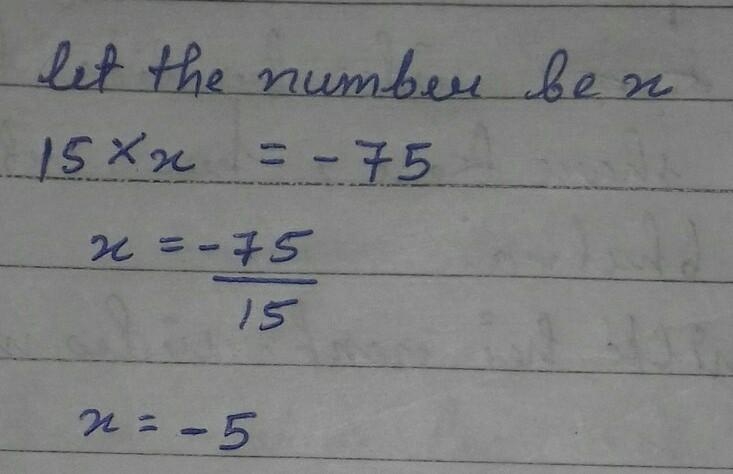 let the number be x
15 × x = - 75
x = - 75
15
x = - 5